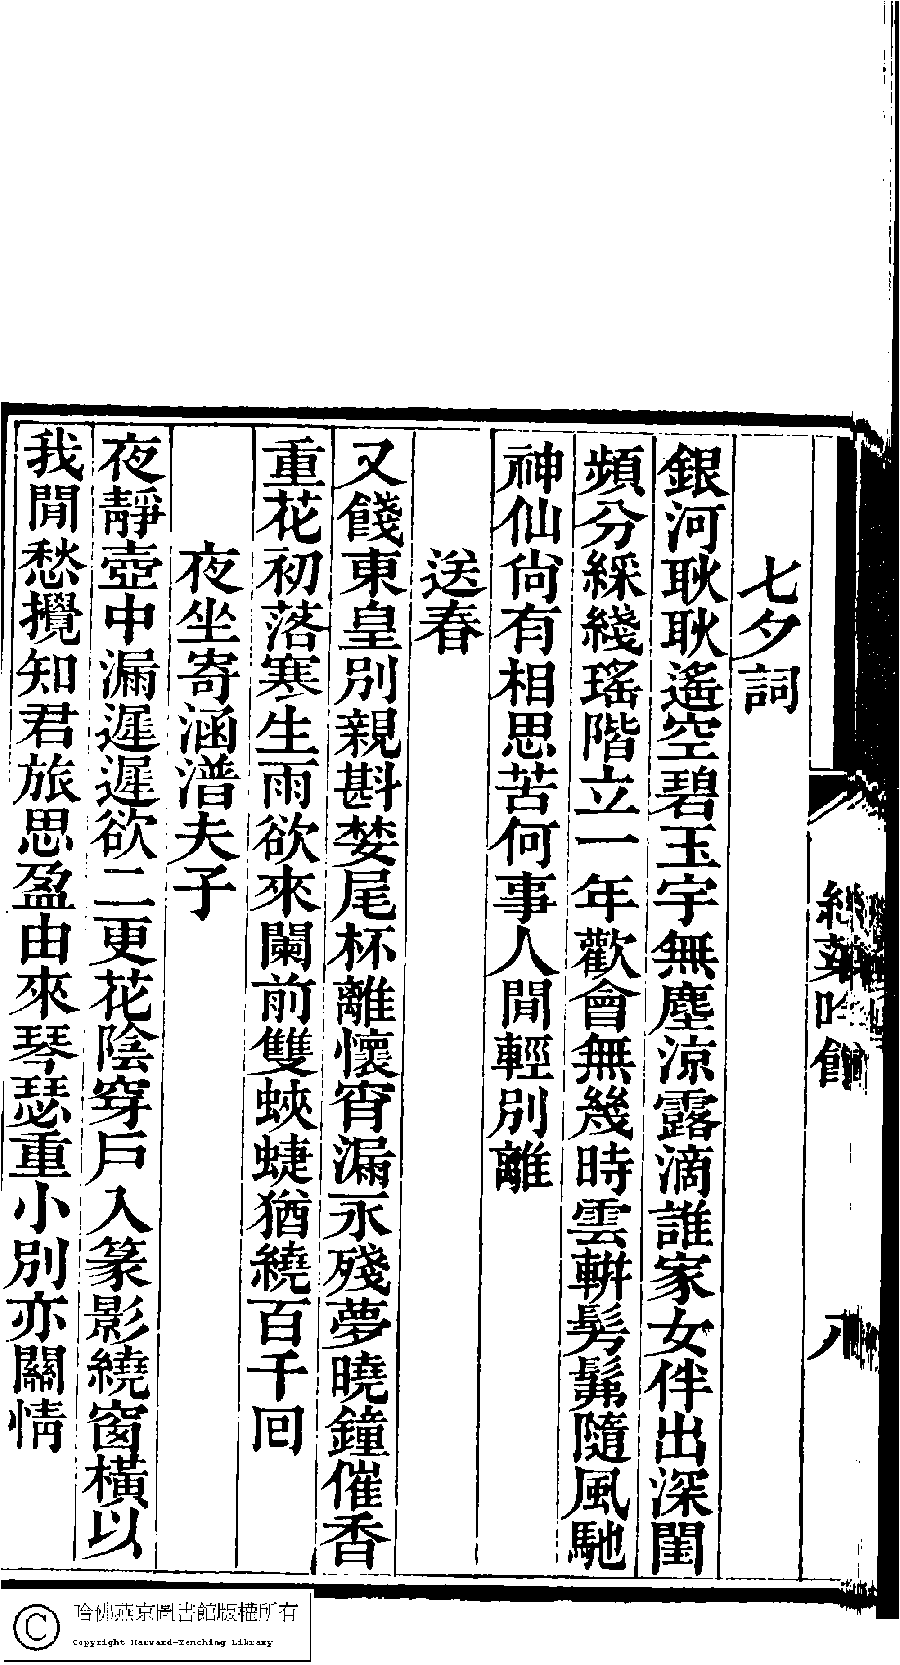 七夕詞
銀河耿耿遙空碧玉宇無塵涼露滴誰家女伴出深閨
頻分綵綫瑤階立一年歡會無幾時雲輧髣髴隨風馳
神仙尙有相思苦何事人閒輕別離
送春
又餞東皇別親斟婪尾杯離懷宵漏永殘夢曉鐘催香
重花初落寒生雨欲來闌前雙蛺蜨猶繞百千回
夜坐寄涵潽夫子
夜靜壺中漏遲遲欲二更花陰穿戶入篆影繞窗橫以
我閒愁攪知君旅思盈由來琴瑟重小別亦關情
吟館
八
哈佛燕京圖書館版權所有
Copyright Harvard-Yenching Library